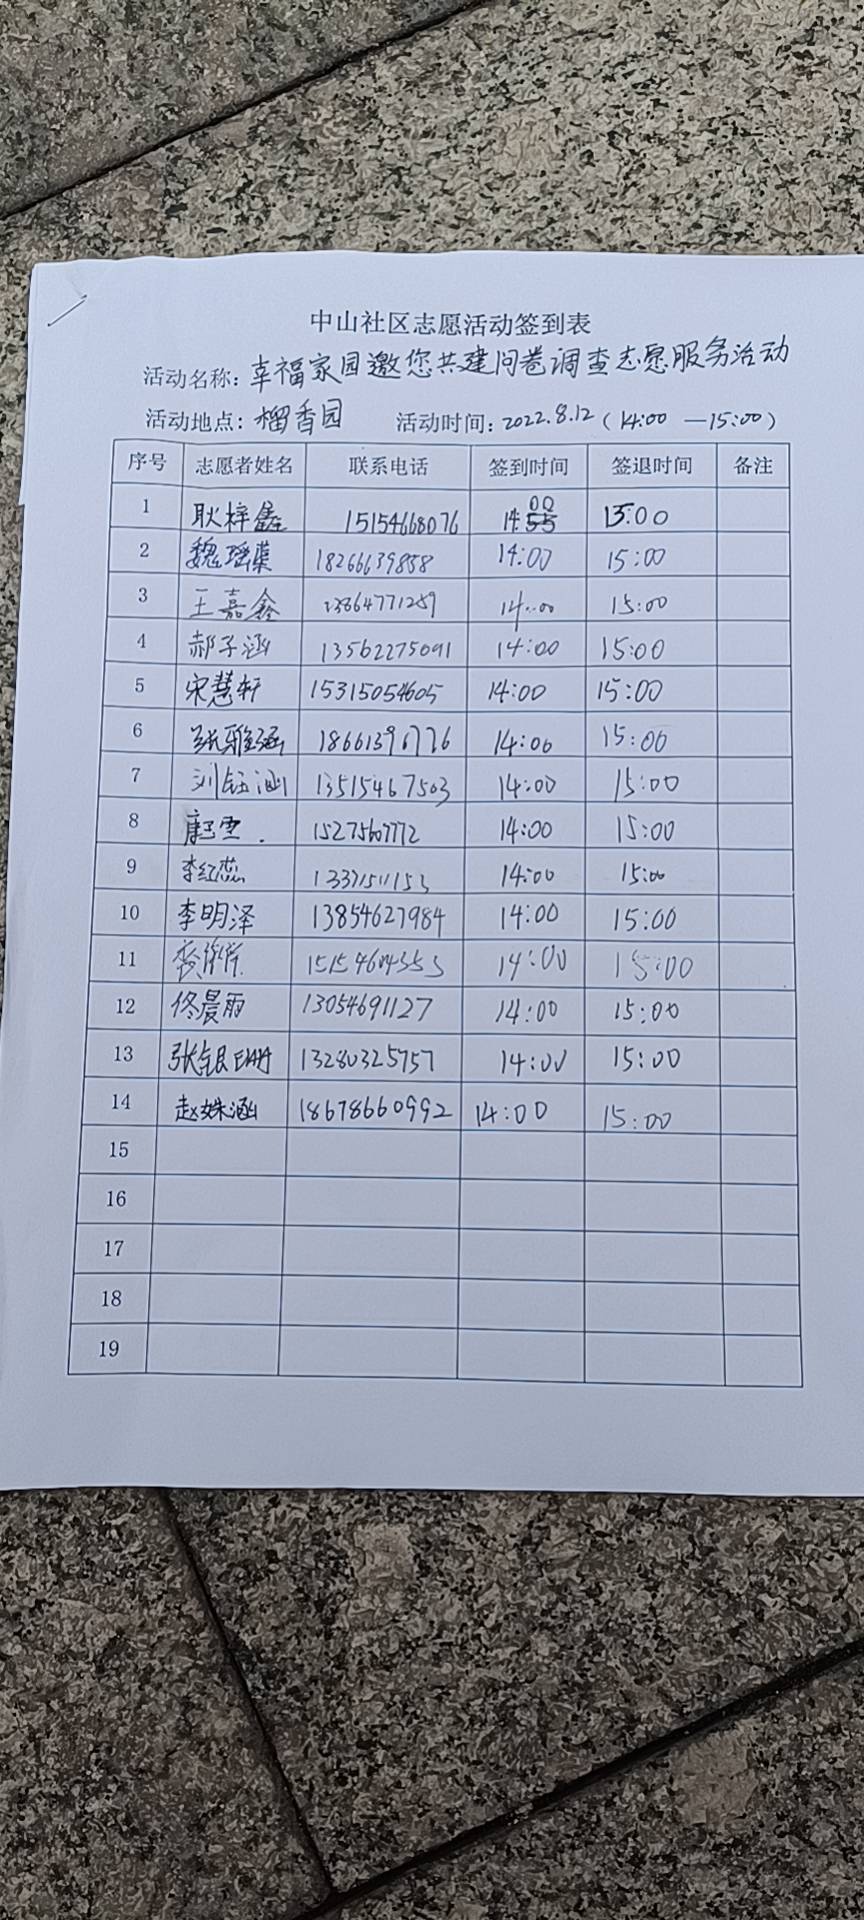 中山社区志愿活动签到表
活动名称：幸福家园邀您共建问卷调查志愿服务活动
活动地点：榴香园 活动时间：2022.8.12（14:00—15:00）
序号 志愿者姓名 联系电话 签到时间 签退时间 备注
1 耿梓鑫 15154668076 14:00 15:00
2 魏瑶蕖 18266639858 14:00 15:00
3 王嘉鑫 13864771259 14:00 15:00
4 郝子涵 13562275091 14:00 15:00
5 宋慧轩 15315054605 14:00 15:00
6 张雅涵 14:00 15:00
7 刘钰涵 13515467503 14:00 15:00
8 14:00 15:00
9 李红蕊 14:00 15:00
10 李明泽 13854627984 14:00 15:00
11 14:00 15:00
12 佟晨雨 13054691127 14:00 15:00
13 13280325757 14:00 15:00
14 赵姝涵 18678660992 14:00 15:00
15
16
17
18
19